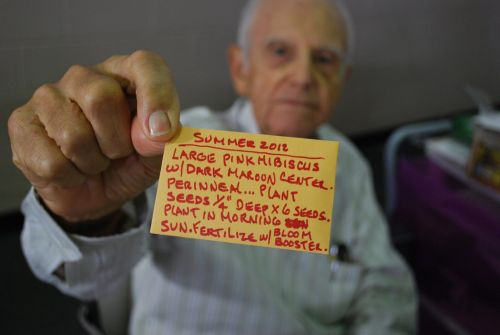 SUMMER 2012
LARGE PINK HIBISCUS
W/ DARK MAROON CENTER.
PERINNEAL... PLANT
SEEDS 1/4" DEEP X 6 SEEDS.
PLANT IN MORNING
SUN. FERTILIZE W/ BLOOM
BOOSTER.